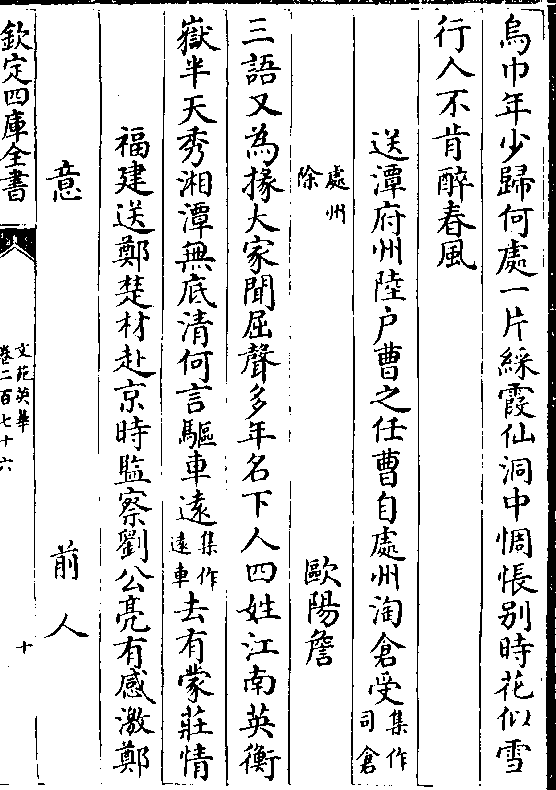 烏巾年少歸何處一片綵霞仙洞中惆悵别時花似雪
行人不肯醉春風
送潭府州陸户曹之任曹自處州淘倉受集作司倉
處州除
歐陽詹
三語又為掾大家聞屈聲多年名下人四姓江南英衡
嶽半天秀湘潭無底清何言驅車遠集作遠車去有蒙莊情
福建送鄭楚材赴京時監察劉公亮有感激鄭
意
前人
欽定四庫全書
文苑英華
卷二百七十六
十